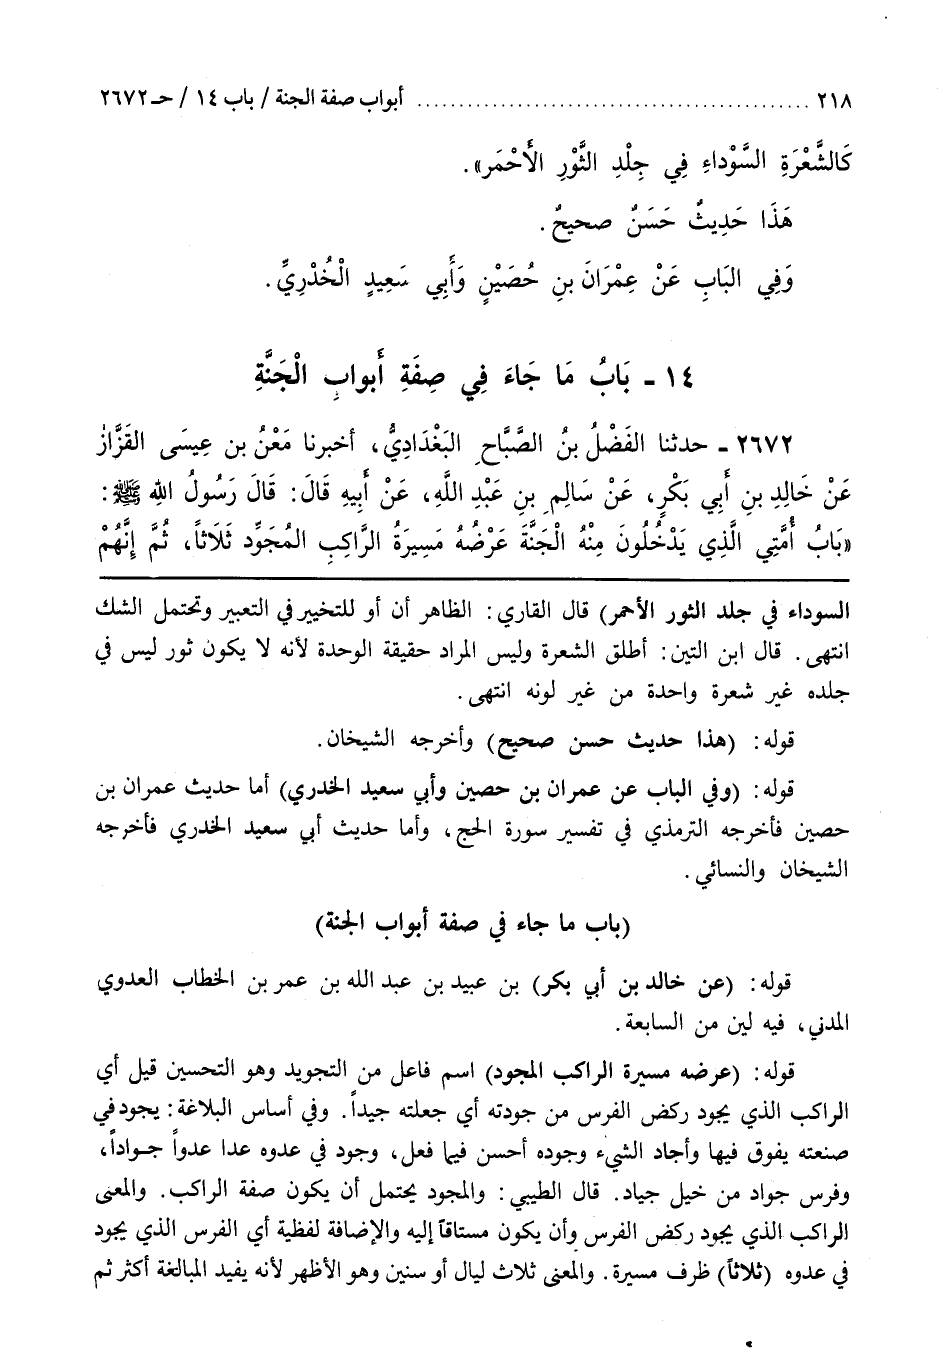 ٢١٨ ................................................ أبواب صفة الجنة / باب ١٤ / حـ ٢٦٧٢
كَالشَّعْرَةِ السَّوْداءِ فِي جِلْدِ الثَّوْرِ الأَحْمَر».
هَذَا حَدِيثٌ حَسَنٌ صحيحٌ.
وَفِي البَابِ عَنْ عِمْرَانَ بنِ حُصَيْنٍ وَأَبِي سَعِيدٍ الْخُدْرِيِّ.
١٤ - بَابُ مَا جَاءَ فِي صِفَةِ أَبوابِ الْجَنَّةِ
٢٦٧٢ - حدثنا الفَضْلُ بنُ الصَّبَّاحِ البَغْدَادِيُّ، أخبرنا مَعْنُ بن عِيسَى القَزَّازُ
عَنْ خَالِدِ بنِ أَبِي بَكْرٍ، عَنْ سَالِمِ بنِ عَبْدِ اللَّهِ، عَنْ أَبِيهِ قَالَ: قَالَ رَسُولُ اللهِ ﷺ:
«بَابُ أُمَّتِي الَّذِي يَدْخُلُونَ مِنْهُ الْجَنَّةَ عَرْضُهُ مَسِيرَةُ الرَّاكِبِ المُجَوِّدِ ثَلَاثاً، ثُمَّ إِنَّهُمْ
السوداء في جلد الثور الأحمر) قال القاري: الظاهر أن أو للتخيير في التعبير وتحتمل الشك
انتهى. قال ابن التين: أطلق الشعرة وليس المراد حقيقة الوحدة لأنه لا يكون ثور ليس في
جلده غير شعرة واحدة من غير لونه انتهى.
قوله: (هذا حديث حسن صحيح) وأخرجه الشيخان.
قوله: (وفي الباب عن عمران بن حصين وأبي سعيد الخدري) أما حديث عمران بن
حصين فأخرجه الترمذي في تفسير سورة الحج، وأما حديث أبي سعيد الخدري فأخرجه
الشيخان والنسائي.
(باب ما جاء في صفة أبواب الجنة)
قوله: (عن خالد بن أبي بكر) بن عبيد بن عبد الله بن عمر بن الخطاب العدوي
المدني، فيه لين من السابعة.
قوله: (عرضه مسيرة الراكب المجود) اسم فاعل من التجويد وهو التحسين قيل أي
الراكب الذي يجود ركض الفرس من جودته أي جعلته جيداً. وفي أساس البلاغة: يجود في
صنعته يفوق فيها وأجاد الشيء وجوده أحسن فيما فعل، وجود في عدوه عدا عدواً جواداً،
وفرس جواد من خيل جياد. قال الطيبي: والمجود يحتمل أن يكون صفة الراكب. والمعنى
الراكب الذي يجود ركض الفرس وأن يكون مستاقاً إليه والإضافة لفظية أي الفرس الذي يجود
في عدوه (ثلاثاً) ظرف مسيرة. والمعنى ثلاث ليال أو سنين وهو الأظهر لأنه يفيد المبالغة أكثر ثم